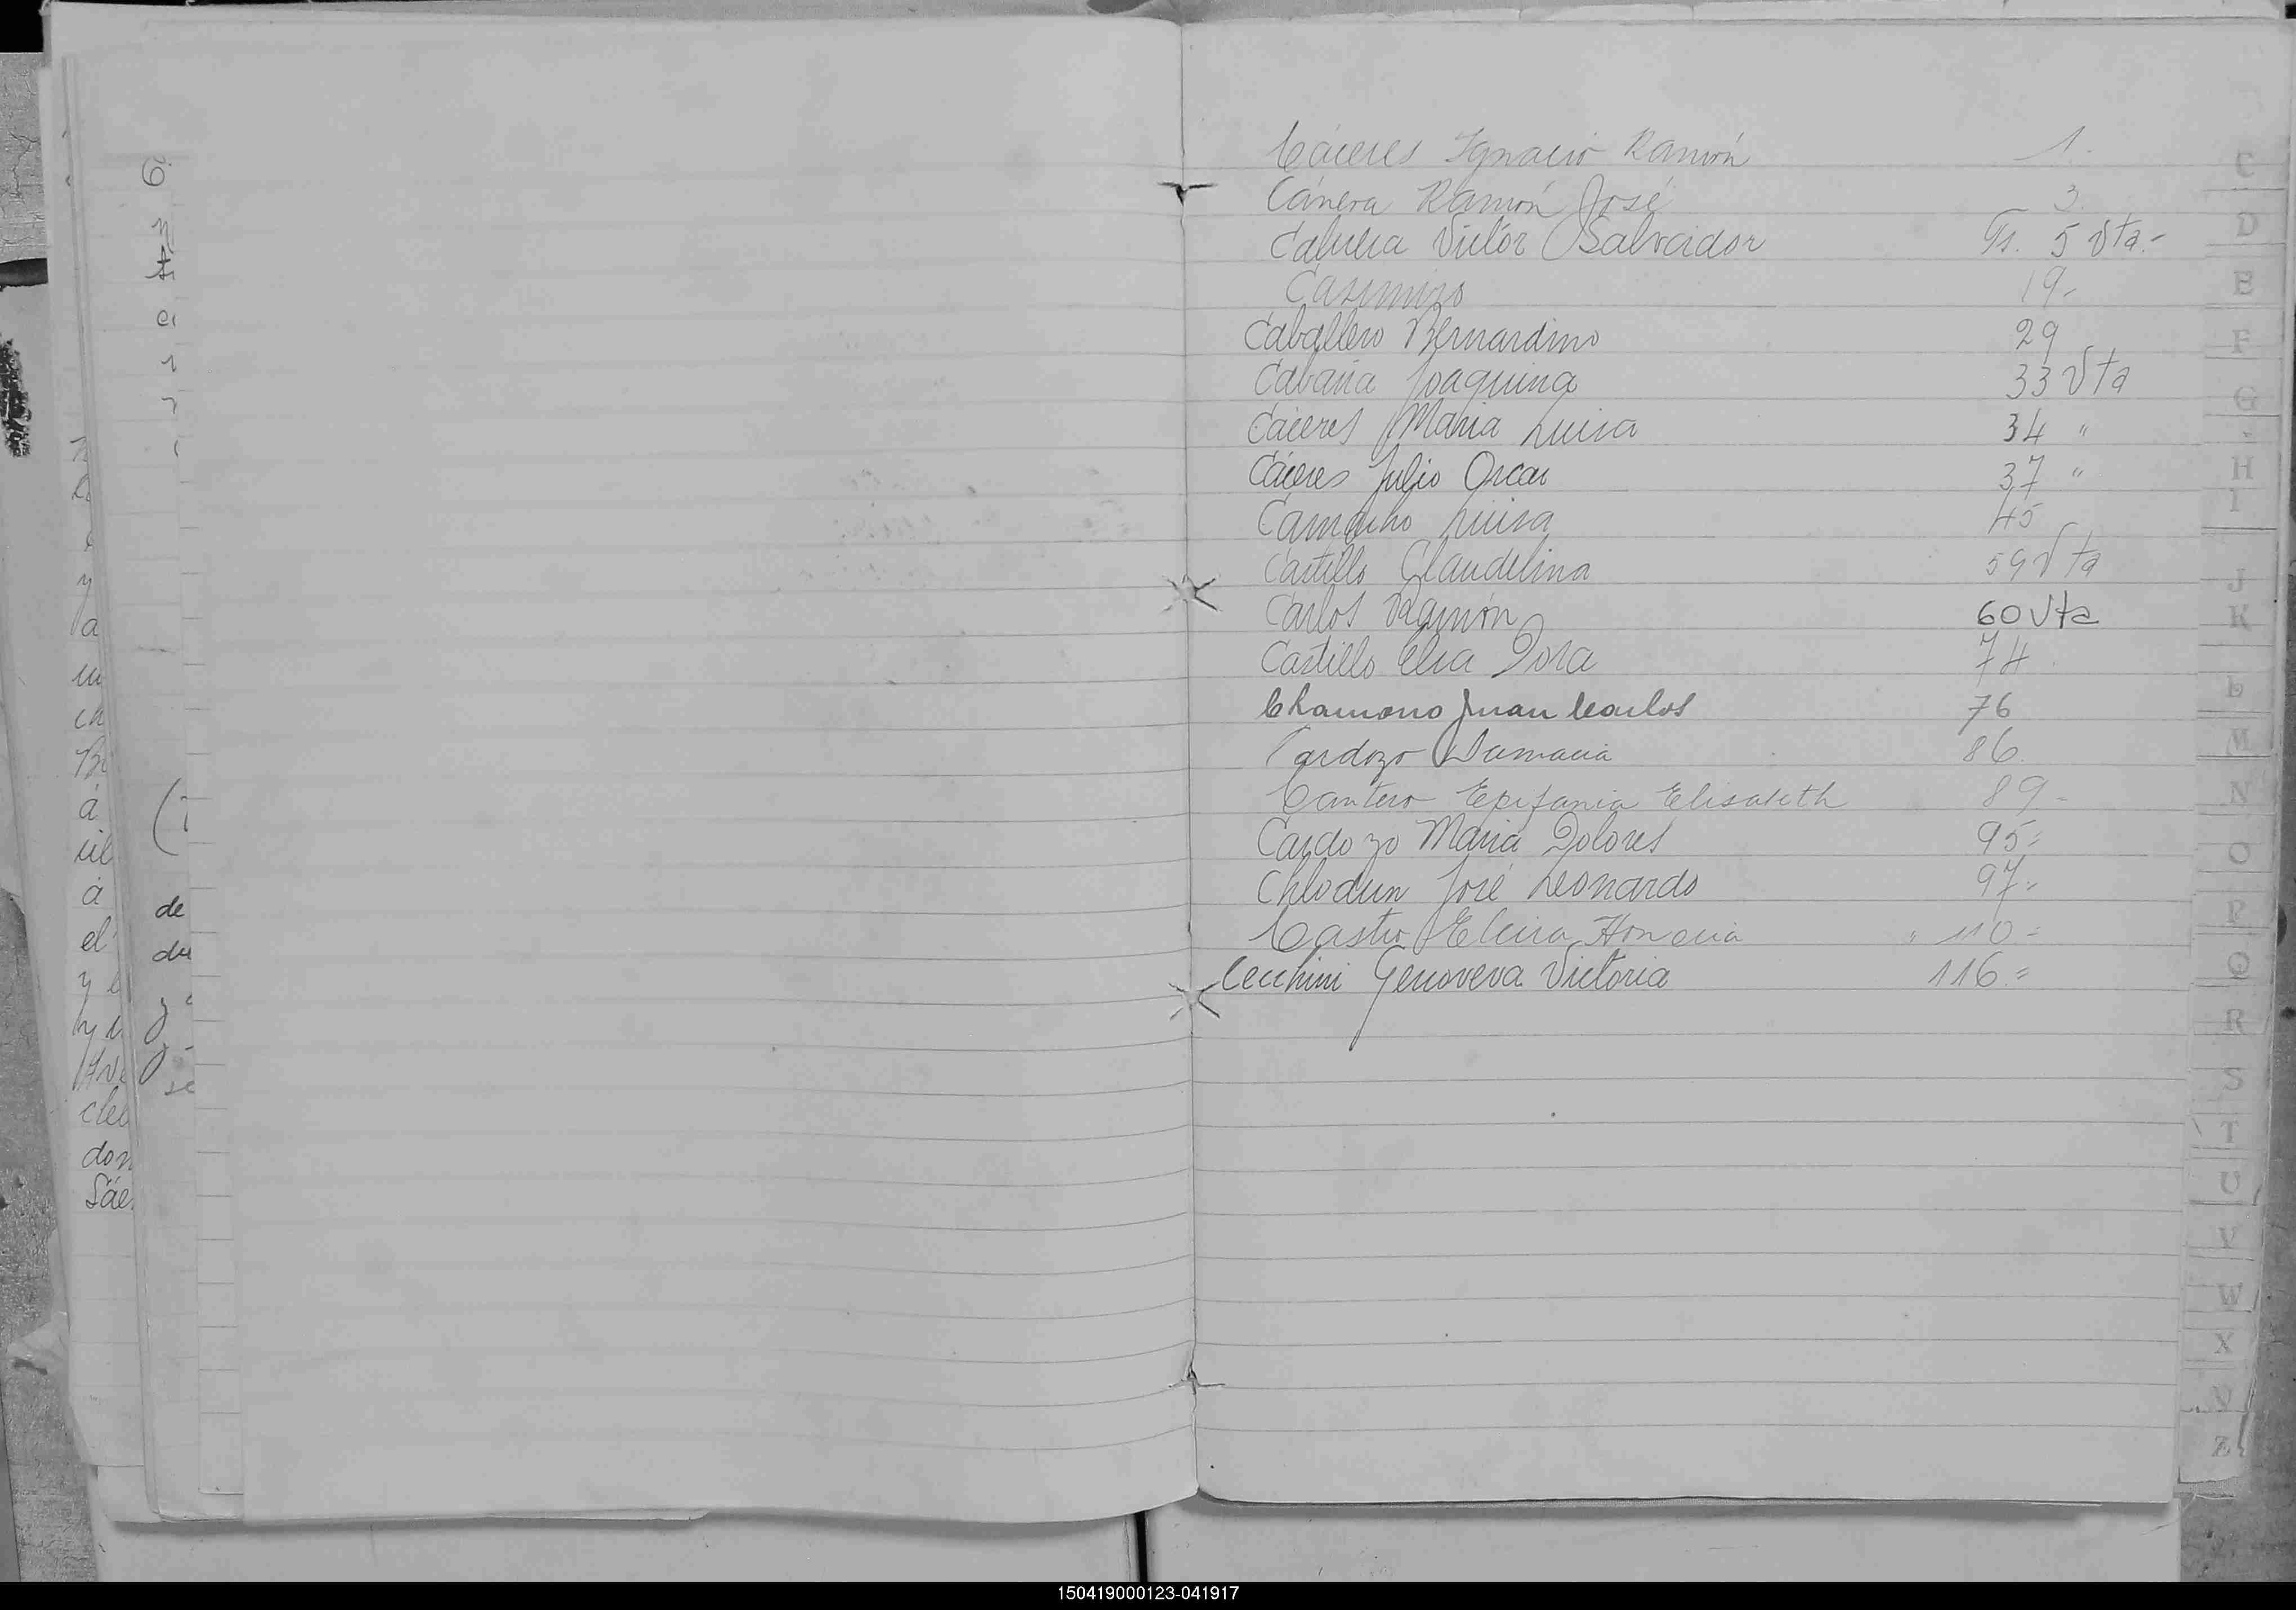 Cáceres Ignacio Ramón 1.
Cánera Ramón José 3.
Cabrera Victór Salvador Fs. 5 Vta.-
Casimiro 19-
Caballero Bernardino 29
Cabaña Joaquina 33 Vta
Cáceres Maria Luisa 34 "
Cáceres Julio Oscar 37 "
Camacho Luisa 45
Castillo Claudelina 59 Vta
Carlos Ramón 60 Vta
Castillo Elsa Dora 74
Chamorro Juan Carlos 76
Cardozo Damacia 86.
Cantero Epifania Elisabeth 89-
Cardozo Maria Dolores 95=
Chlodun José Leonardo 97-
Castro Elvira Honoria " 110=
Cecchini Genoveva Victoria 116.=
de
C
D
E
F
G
H
I
J
K
L
M
N
O
P
Q
R
S
T
U
V
W
X
Z
150419000123-041917